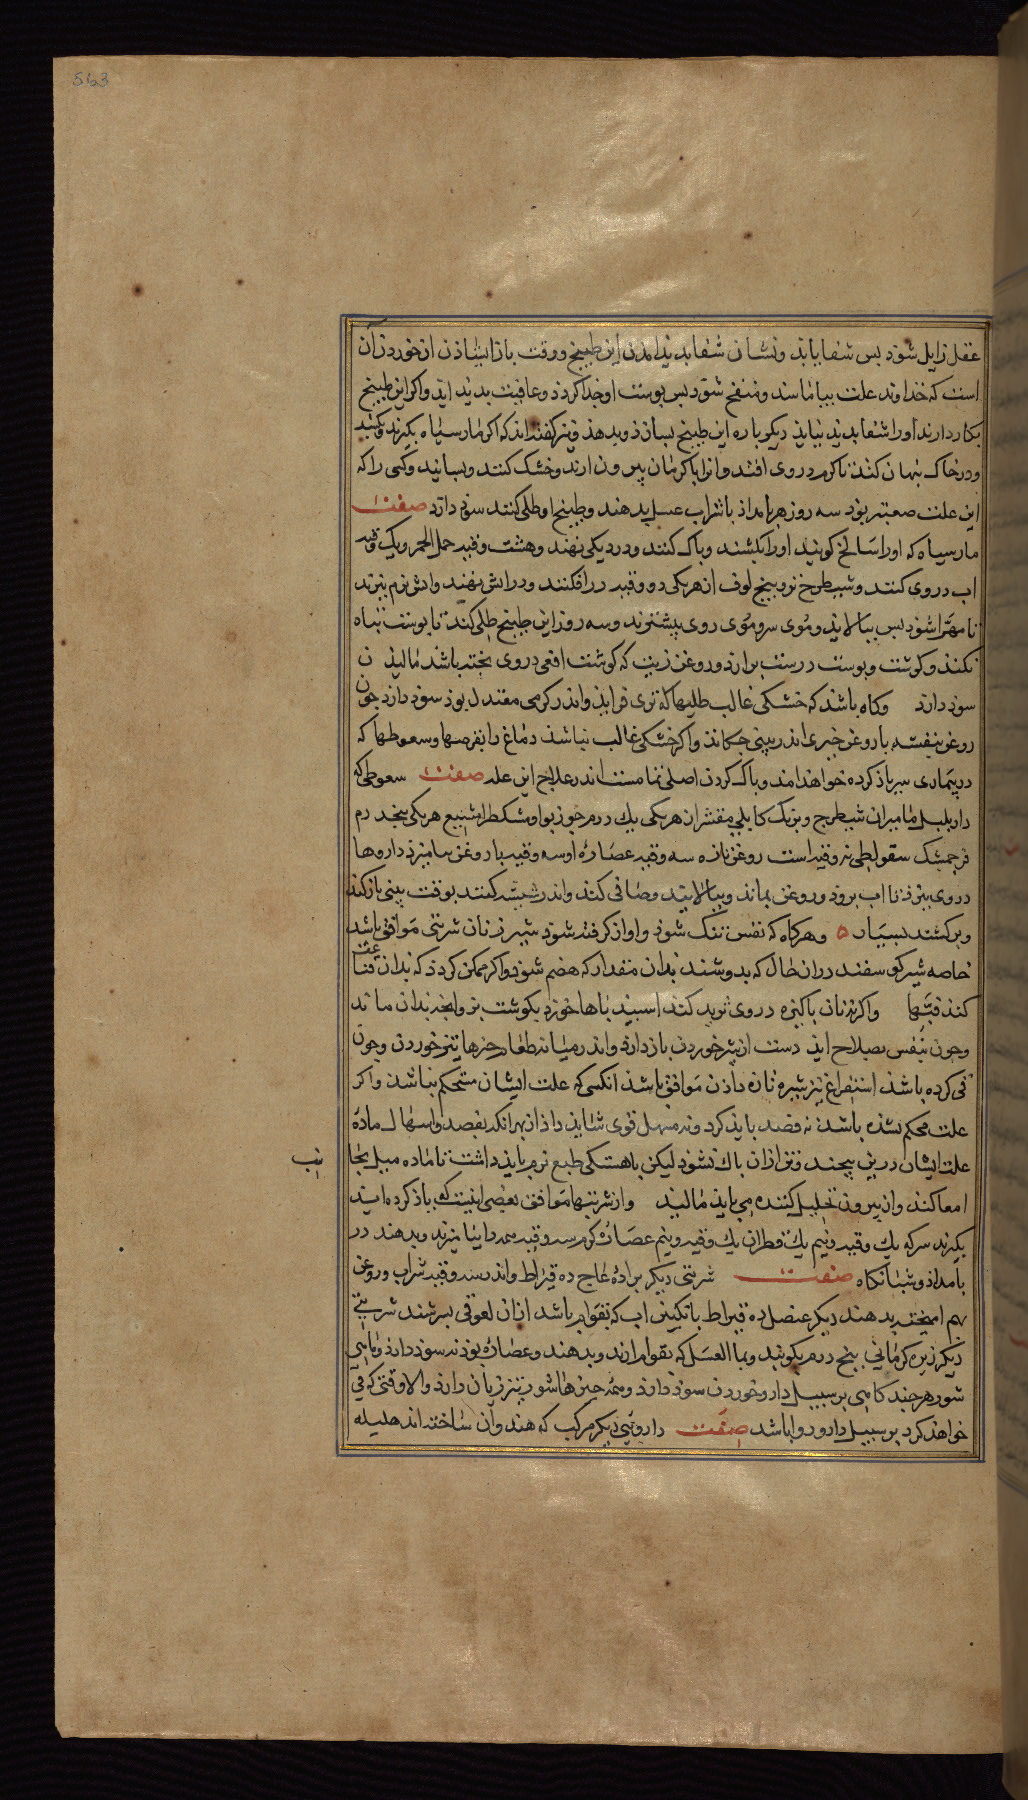 563
عقل زایل شود پس شفا یابد و نشان شفا بدید آمدن این طبیخ و وقت باز ایستاذن از خوردن آن
است که خداوند علت بیاماسد و منتفخ شود پس پوست او جدا کردد و عافیت بدید اید واکر این طبیخ
بکار دارند اورا شفا بدید نیاید دیکر باره این طبیخ بسازند و بدهند و نیز کفته اند که اکر مار سیاه بکیرند و بکشند
ودر خاک بنهان کنند تا کرم در وی افتد وانرا با کرمان بیرون ارند و خشک کنند و بسایند و کسی را که
این علت صعبتر بود سه روز هر بامداد با شراب عسل بدهند و طبیخ او طلی کنند سود دارد صفت
مار سیاه که اورا سالخ کویند اورا بکشند و پاک کنند و در دیکی نهند و هشت وقیه خل الخمر و یک وقیه
اب در وی کنند و شیطرج تر و بیخ لوف از هر یکی دو وقیه در افکنند و در اتش نهند واتش نرم بنهند
تا مهرا شود پس بپالاید و موی سر و موی روی بیسترند و سه روز این طبیخ طلی کنند تا پوست تباه
نکند و کوشت و پوست درست برارد و روغن زیت که کوشت افعی در وی پخته باشد مالیدن
سود دارد وکاه باشد که خشکی غالب طلیها که تری فزاید واندر کرمی معتدل بود سود دارد چون
روغن بنفشه با روغن خیری اندر بینی چکانند واکر خشکی غالب نباشد دماغ را بقرصها و سعوطها که
در بیماری سر یاذ کرده خواهد امد و پاک کردن اصلی تمامست اندر علاج این علت صفت سعوطی که
دار بلبل مامیران شیطرج و برنک کابلی مقشر از هر یکی یک درم جوز بوا و مشکطرامشیع هر یکی پنج درم
فرنجمشک سقولطی نه وقیه است روغن تازه سه وقیه عصارهٔ او سه وقیه با روغن بیامیزند داروها
در وی بپزند تا اب برود و روغن بماند و بپالایند و صافی کنند واندر شیشه کنند بوقت بینی باز کنند
و برکشند بسیار ٥ وهرکاه که نفس تنک شود و اواز کرفته شود شیر زنان شربتی موافق باشد
خاصه شیر کوسفند در ان حال که بدوشند بدان مقدار که هضم شود واکر ممکن کردد که بدان قناعت
کنند فبها واکر نه نان پاکیزه در وی ثرید کنند اسبیدباها خورد بکوشت بز وانچه بدان ماند
وچون نفس بصلاح اید دست از شیر خوردن باز دارد واندر میانه طعام چیزهای تیز خوردن وچون
قی کرده باشد استفراغ نیز بشیره تازه دادن موافق باشد انکسی که علت ایشان مستحکم نباشد واکر
علت محکم شده باشد نه فصد باید کرد و نه مسهل قوی شاید داد از بهر انکه بفصد و اسهال مادهٔ
علت ایشان در تن بیجند و تن ازان پاک نشود لیکن باهستکی طبع نرم باید داشت تا ماده میل بجا
امعا کند واز بیرون تحلیل کننده می باید مالید واز شربتها موافق بعضی اینست که یاذ کرده اید
بکیرند سرکه یک وقیه و نیم یک قطران یک وقیه و نیم عصاره کرم سه وقیه همه را بیامیزند و بدهند در
بامداد و شبانکاه صفت شربتی دیکر برادهٔ عاج ده قیراط واندر سه وقیه شراب و روغن
بهم امیخته بدهند دیکر عنصل ده قیراط با انکبین اب که بقوام باشد ازان لعوقی بسرشند شربتی
دیکر زیره کرمانی پنج درم بکوبند و بماء العسل که بقوام ارند و بدهند و عصاره بودنه سود دارد و ماهی
شور هرچند کاهی بر سبیل دارو خوردن سود دارد وهمه چیزها شور و تیز زیان دارد والا وقتی که قی
خواهد کرد بر سبیل دارو روا باشد صفت داروئی دیکر مرکب که هندوان ساخته اند هلیله